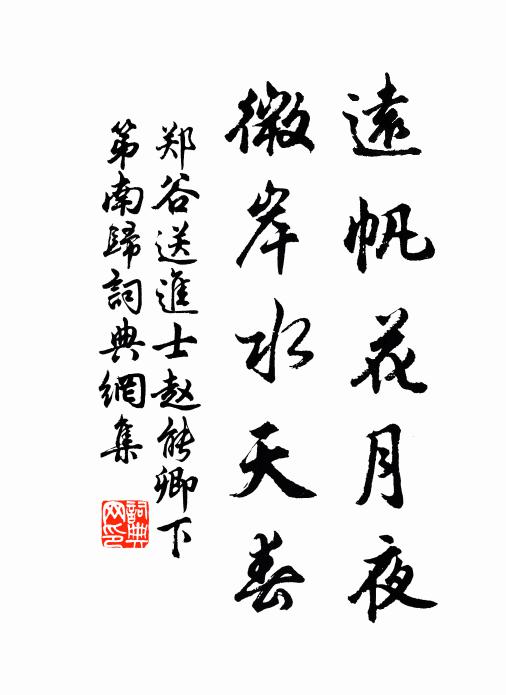 遠帆花月夜
微岸水天春
郑谷送進士赵能卿下
第南歸詞典網集
詞典网印